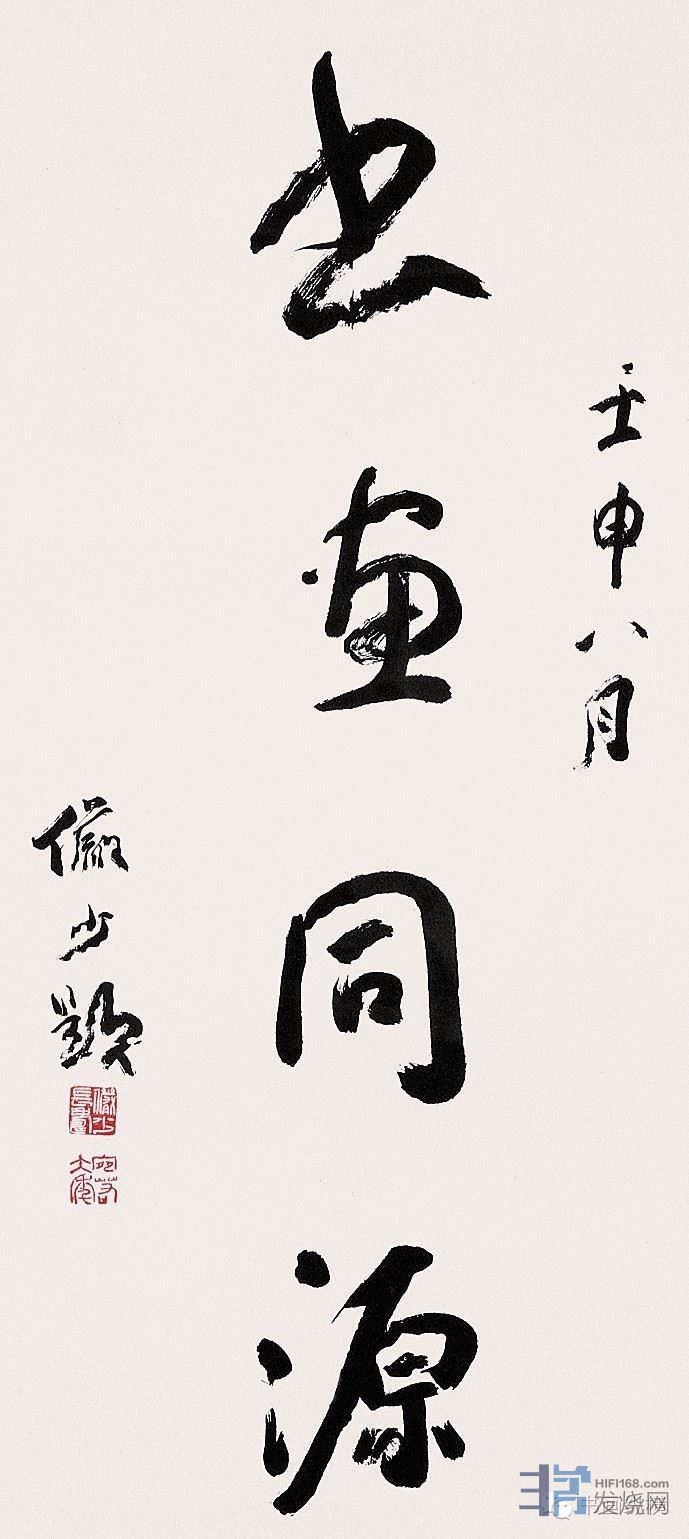 壬申八月
书画同源
儼少題
HIFI168.com
发烧网